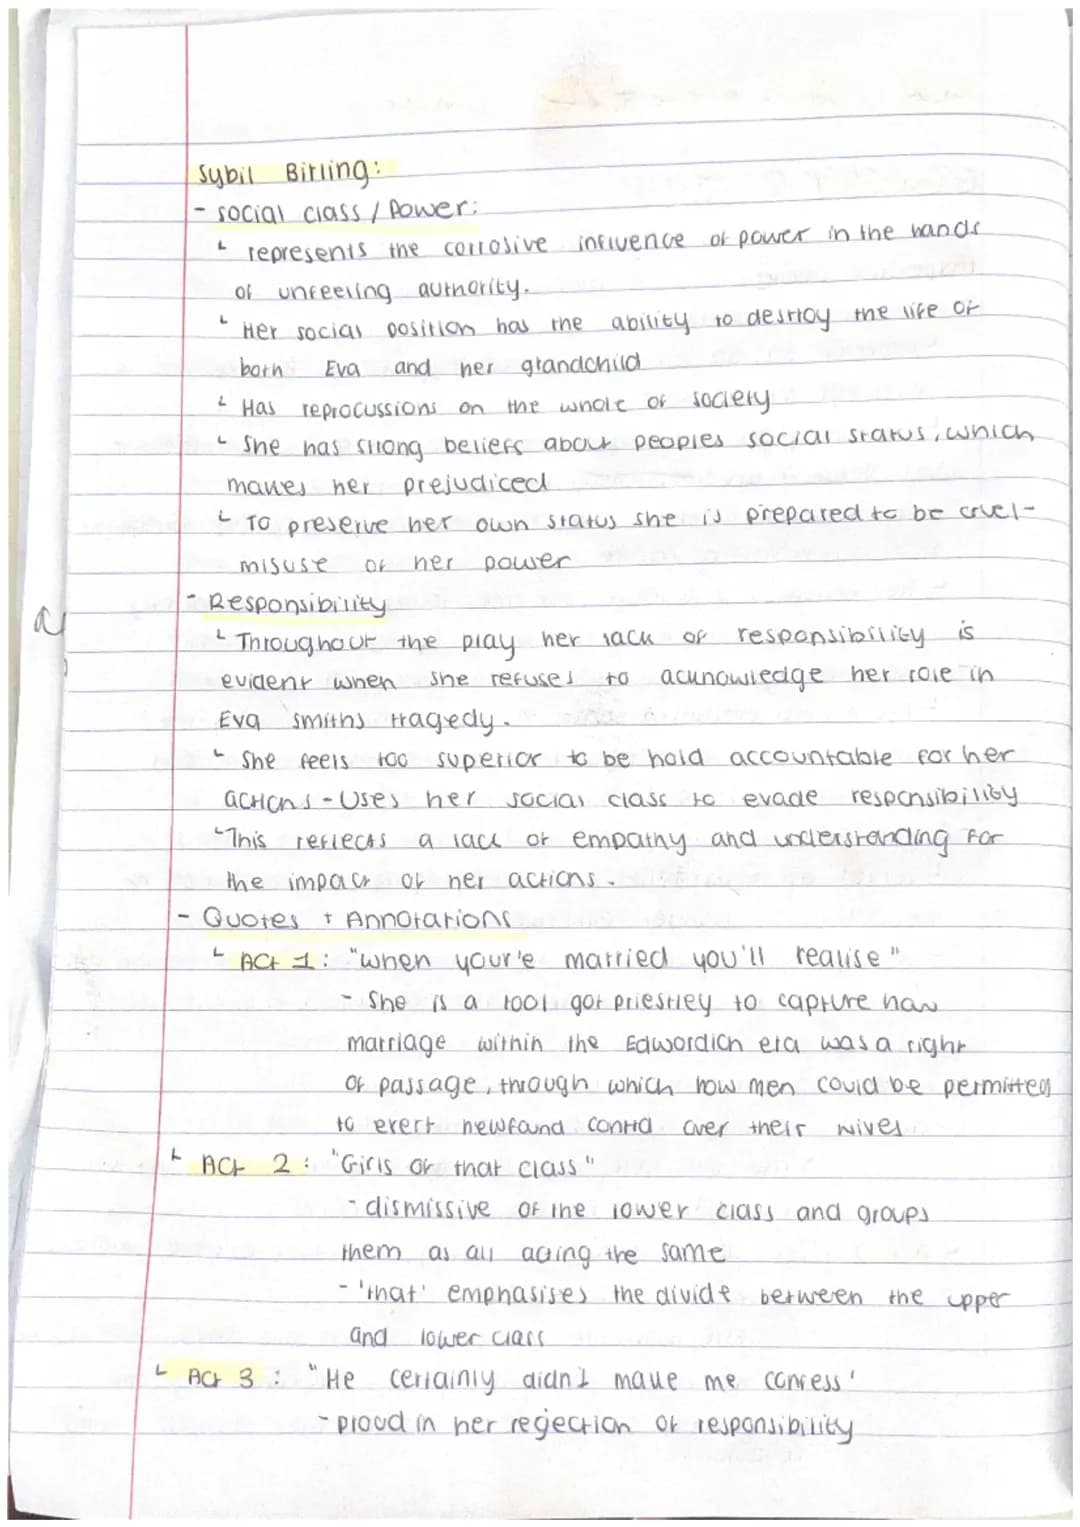 Sybil Birling:
- social class / Power:
└ represents the corrosive influence of power in the hands
of unfeeling authority.
└ Her social position has the ability to destroy the life of
both Eva and her grandchild
└ Has reprocussions on the whole of society
└ She has strong beliefs about peoples social status, which
makes her prejudiced
└ To preserve her own status she is prepared to be cruel-
misuse of her power
- Responsibility
└ Throughout the play her lack of responsibility is
evident when she refuses to acknowledge her role in
Eva smiths tragedy.
└ She feels too superior to be hold accountable for her
actions - Uses her social class to evade responsibility
└ This reflects a lack of empathy and understanding for
the impact of her actions.
- Quotes + Annotations
└ Act 1: "when your'e married you'll realise"
- She is a tool got priestley to capture how
marriage within the Edwordian era was a right
of passage, through which how men could be permitted
to exert newfound control over their wives
└ Act 2: "Girls of that class"
- dismissive of the lower class and groups
them as all acting the same
- 'that' emphasises the divide between the upper
and lower class
└ Act 3: "He certainly didn't make me confess'
- proud in her rejection of responsibility